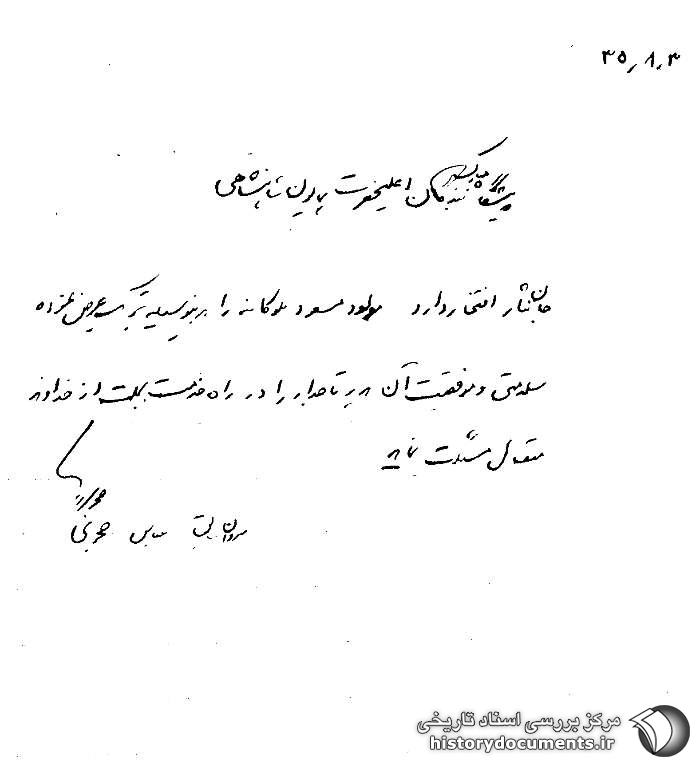 ۳۵٫۸٫۳
پیشگاه مبارک بندگان اعلیحضرت همایون شاهنشاهی
جان نثار افتخار دارد مولود مسعود ملوکانه را بدینوسیله تبریک عرض نموده
سلامتی و موفقیت آن پدر تاجدار را در راه خدمت بملت از خداوند
متعال مسئلت نماید
عباس
مرکز بررسی اسناد تاریخی
historydocuments.ir